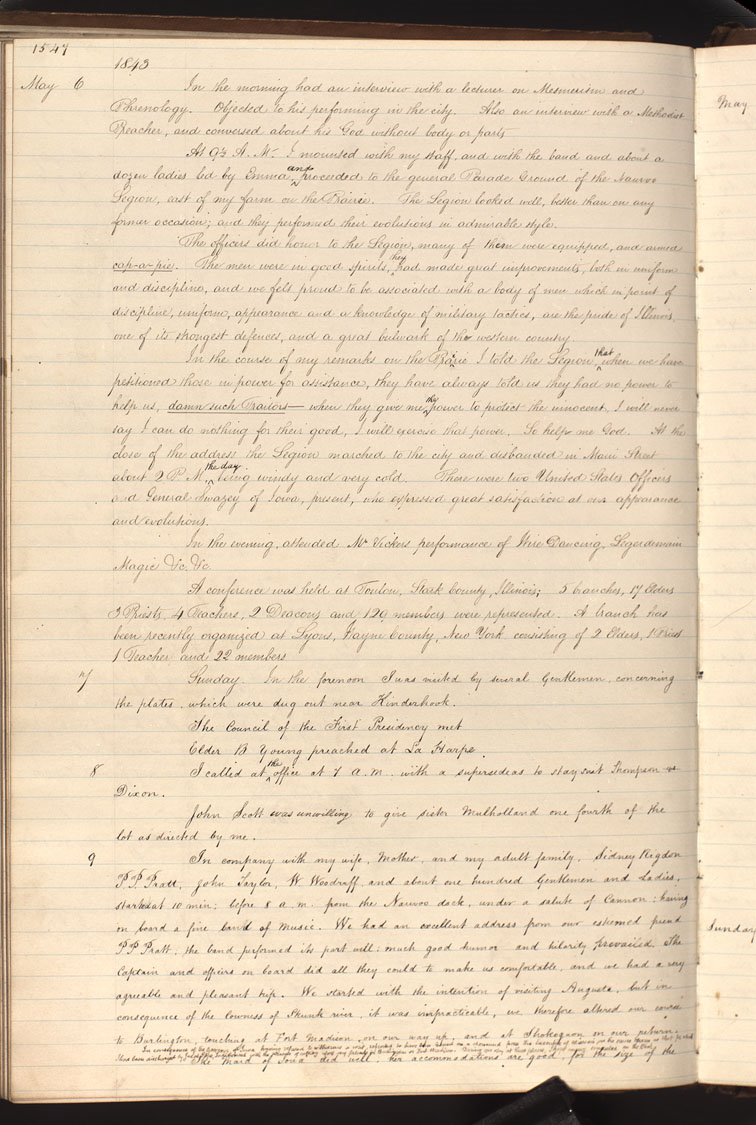 1547
1843
May 6 In the morning had an interview with a lecturer on Mesmerism and
Phrenology. Objected to his performing in the city. Also an interview with a Methodist
Preacher, and conversed about his God without body or parts
At 9½ A. M. I mounted with my staff, and with the band and about a
dozen ladies led by Emma, and proceeded to the general Parade Ground of the Nauvoo
Legion, east of my farm on the Prairie. The Legion looked well, better than on any
former occasion; and they performed their evolutions in admirable style.
The officers did honor to the Legion, many of them were equipped, and armed
cap-a-pie. The men were in good spirits, they had made great improvements, both in uniform
and discipline, and we felt proud to be associated with a body of men which in point of
discipline, uniform, appearance and a knowledge of military tactics, are the pride of Illinois
one of its strongest defences, and a great bulwark of the western country.
In the course of my remarks on the Prairie I told the Legion, that when we have
petitioned those in power for assistance, they have always told us they had no power to
help us, damn such Traitors— when they give me the power to protect the innocent, I will never
say I can do nothing for their good, I will exercise that power. So help me God. At the
close of the address the Legion marched to the city and disbanded in Main Street
about 2 P. M., the day being windy and very cold. There were two United States Officers
and General Swazey of Iowa, present, who expressed great satisfaction at our appearance
and evolutions.
In the evening, attended Mr Vickers performance of Wire Dancing, Legerdemain
Magic &c. &c.
A conference was held at Toulon, Stark County, Illinois; 5 branches, 17 Elders
3 Priests, 4 Teachers, 2 Deacons and 129 members were represented. A branch has
been recently organized at Lyons, Wayne County, New York, consisting of 2 Elders, 1 Priest
1 Teacher and 22 members
7 Sunday. In the forenoon I was visited by several Gentlemen, concerning
the plates, which were dug out near Kinderhook.
The Council of the First Presidency met
Elder B Young preached at La Harpe.
8 I called at the office at 7 a.m. with a supersedeas to stay suit Thompson vs
Dixon.
John Scott was unwilling to give sister Mulholland one fourth of the
lot as directed by me.
9 In company with my wife, Mother, and my adult family, Sidney Rigdon
P. P. Pratt, John Taylor, W. Woodruff, and about one hundred Gentlemen and Ladies,
started at 10 min; before 8 a.m. from the Nauvoo dock, under a salute of Cannon; having
on board a fine band of music. We had an excellent address from our esteemed friend
P P Pratt; the band performed its part well; much good humor and hilarity prevailed. The
Captain and officers on board did all they could to make us comfortable, and we had a very
agreeable and pleasant trip. We started with the intention of visiting Augusta, but in
consequence of the lowness of Skunk river, it was impracticable, we therefore altered our course
to Burlington, touching at Fort Madison on our way up, and at Shokoquon on our return.
The Maid of Iowa did well, her accommodations are good for the size of the
May
Sunday